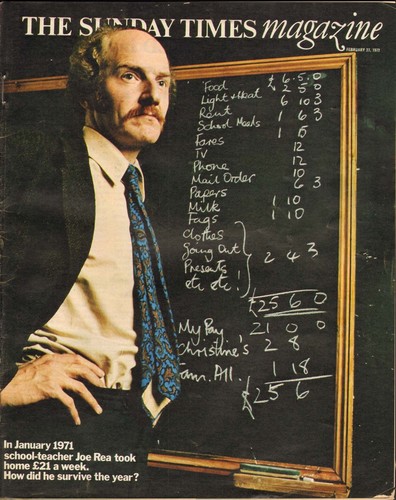 THE SUNDAY TIMES magazine
FEBRUARY 21, 1971
Food £ 6.5.0
Light & Heat 2 5 0
Rent 6 10 3
School Meals 1 6 3
Fares 1 5
TV 12
Phone 12
Mail Order 10
Papers 6 3
Milk 1 10
Fags 1 10
Clothes
Going Out 2 4 3
Presents
etc etc!
£25 6 0
My Pay 21 0 0
Christine's 2 8
Fam. All. 1 18
£25 6
In January 1971
school-teacher Joe Rea took
home £21 a week.
How did he survive the year?